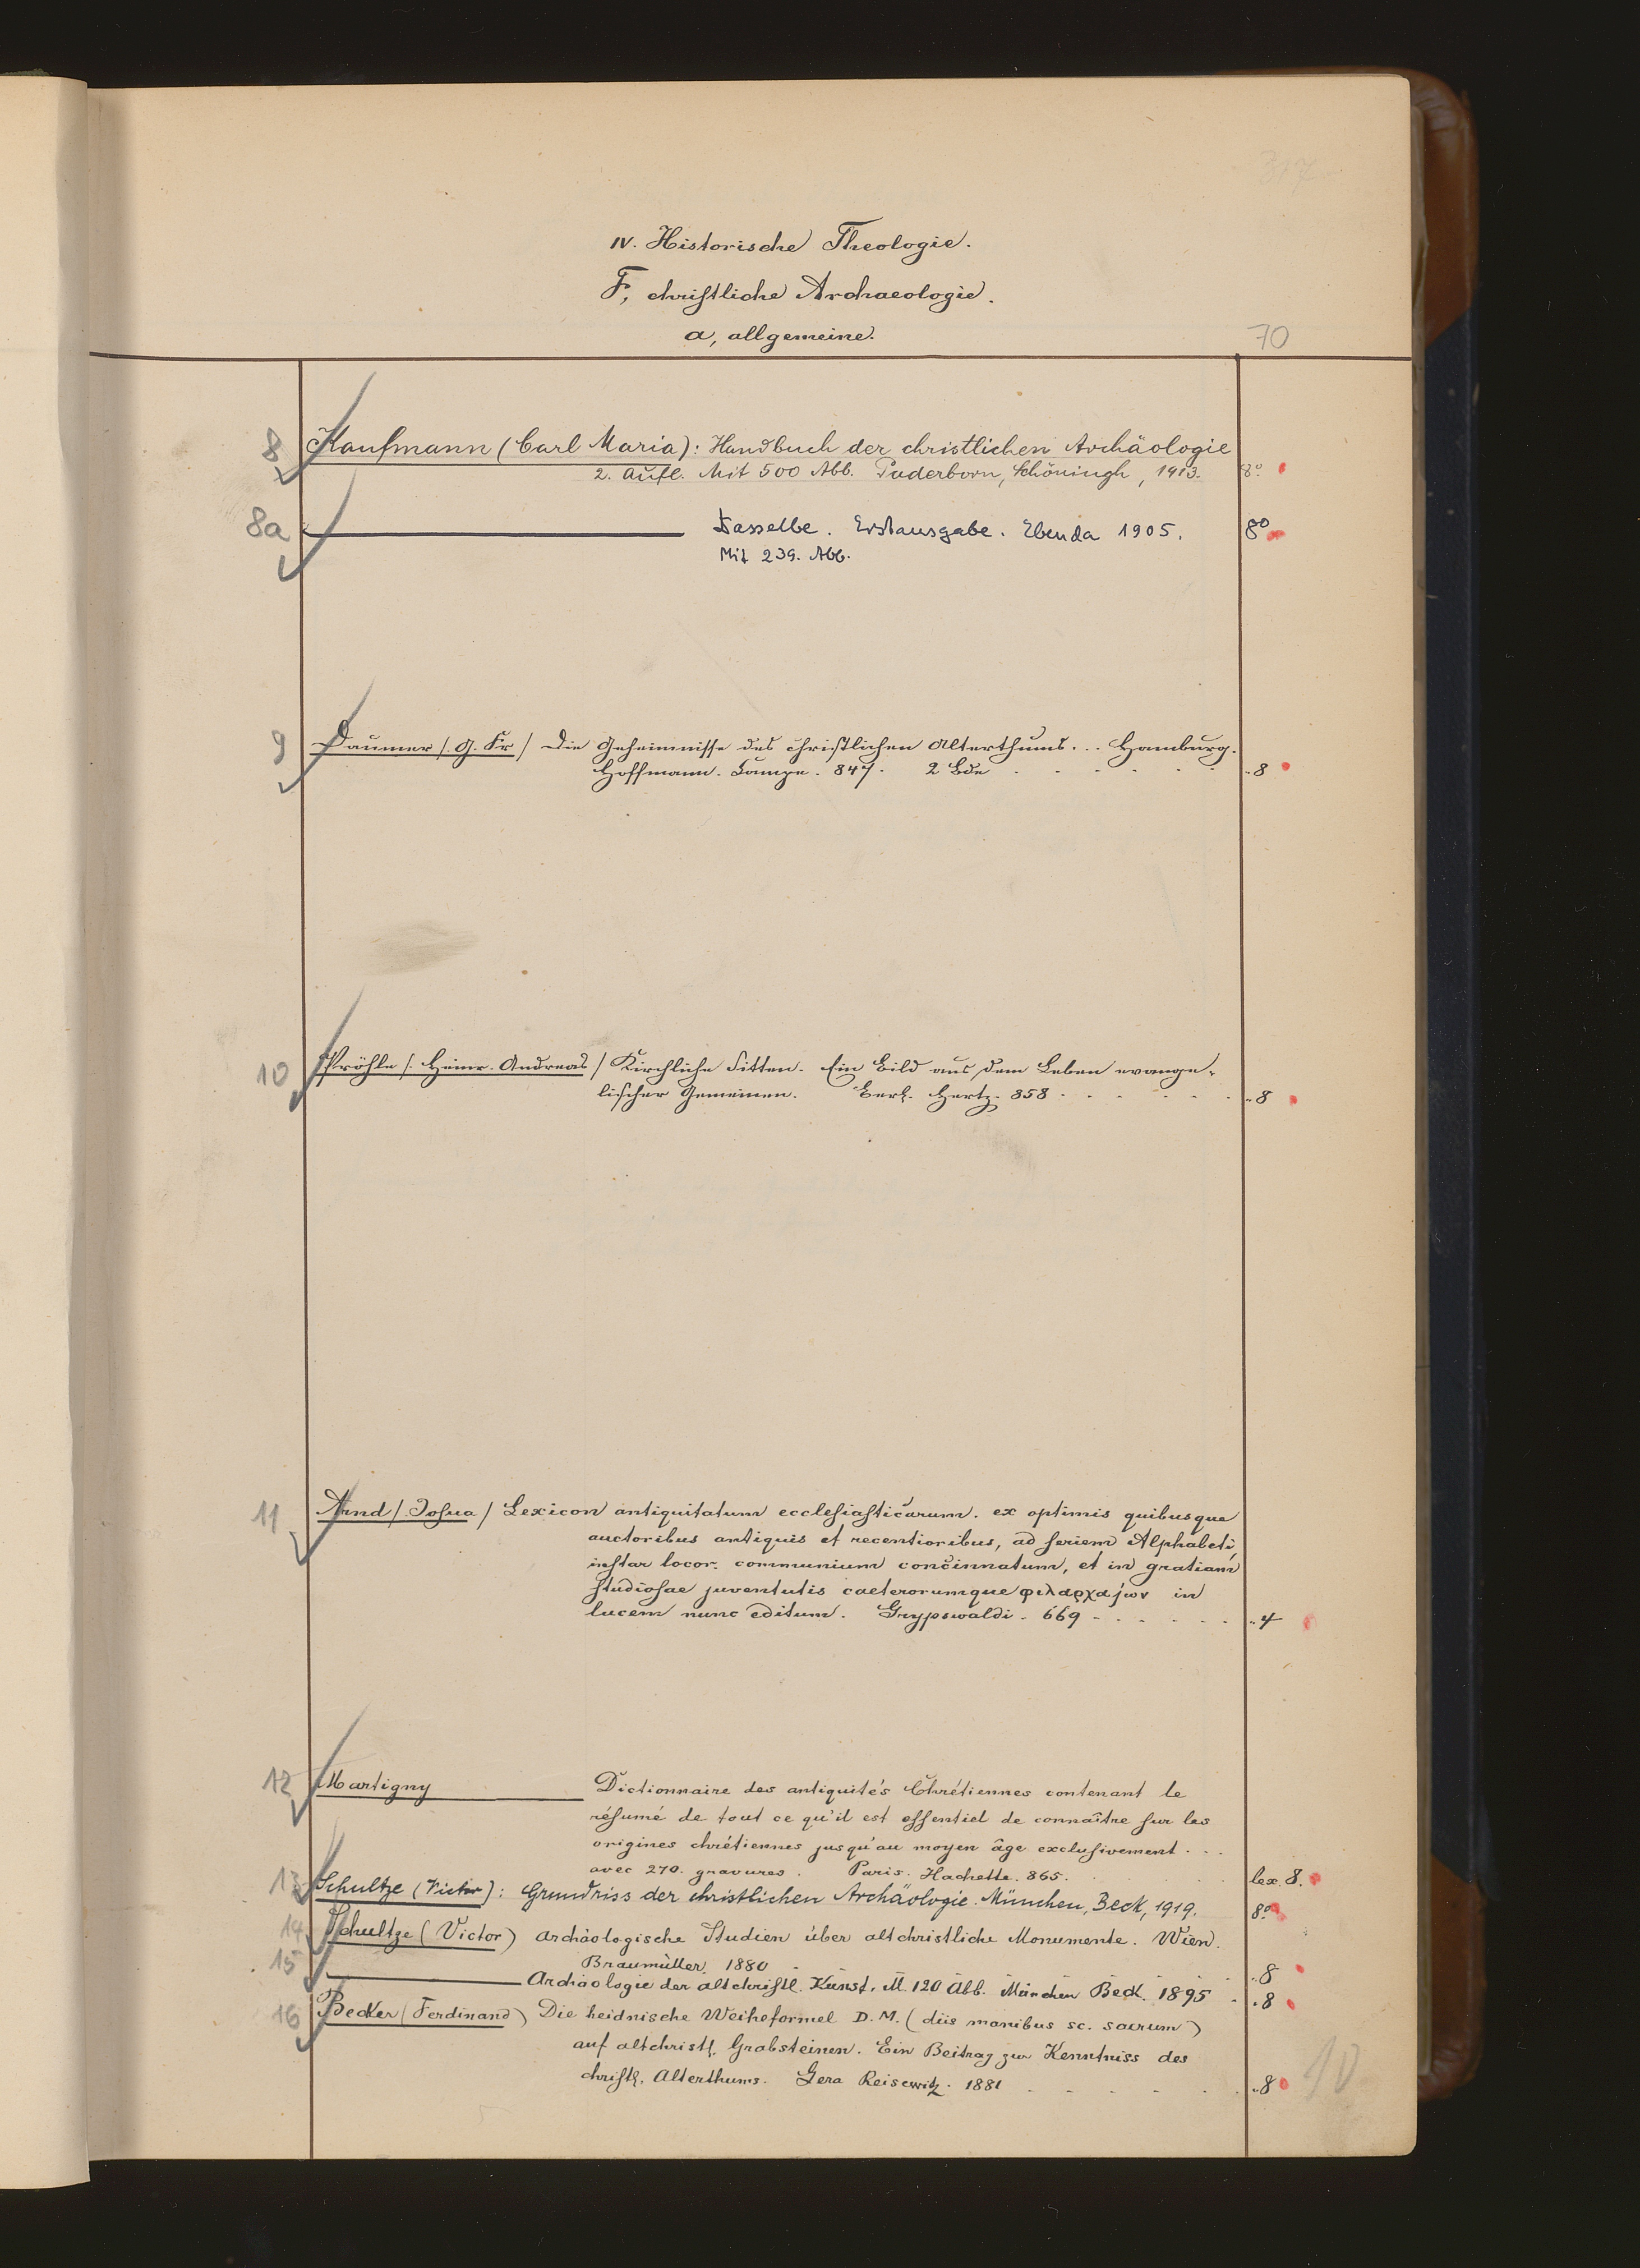 317
IV. Historische Theologie.
F, christliche Archaeologie.
a, allgemeine.
70
8 Kaufmann (Carl Maria): Handbuch der christlichen Archäologie
2. Aufl. Mit 500 Abb. Paderborn, Schöningh, 1913. 8°
8a Dasselbe. Erstausgabe. Ebenda 1905. 8°
Mit 239. Abb.
9 Daumer /. G. Fr / Die Geheimnisse des christlichen Alterthums... Hamburg.
Hoffmann. Campe. 847. 2 Bde . . . . . . „8
10 Pröhle /. Heinr. Andreas / Kirchliche Sitten. Ein Bild aus dem Leben evange-
lischer Gemeinen. Berl. Hertz. 858 . . . . . . „8
11 Arnd /. Josua / Lexicon antiquitatum ecclesiasticarum. ex optimis quibusque
auctoribus antiquis et recentioribus, ad seriem Alphabeti,
instar locor. communium concinnatum, et in gratiam
studiosae juventutis caeterorumque φιλαρχαjων in
lucem nunc editum. Grypswaldi. 669 . . . . . . „4
12 Martigny Dictionnaire des antiquités Chrétiennes contenant le
résumé de tout ce qu'il est essentiel de connaître sur les
origines chrétiennes jusqu'au moyen âge exclusivement...
avec 270. gravures. Paris. Hachette. 865. lex. 8.
13 Schultze (Victor): Grundriss der christlichen Archäologie. München, Beck, 1919. 8°
14 Schultze (Victor) Archäologische Studien über altchristliche Monumente. Wien.
Braumüller. 1880 „8
15 Archäologie der altchristl. Kunst. M. 120 Abb. München Beck. 1895 „8
16 Becker (Ferdinand) Die heidnische Weiheformel D. M. (diis manibus sc. sacrum)
auf altchristl. Grabsteinen. Ein Beitrag zur Kenntniss des
christl. Alterthums. Gera Reisewitz. 1881 . . . . . „8
10